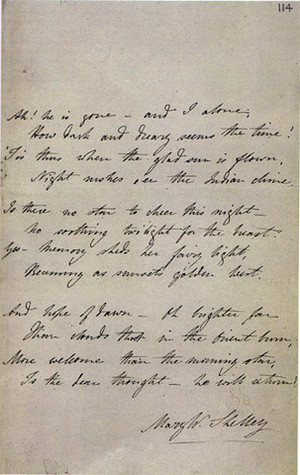 114
Ah! he is gone – and I alone;
How dark and dreary seems the time!
'Tis thus when the glad sun is flown,
Night rushes o'er the Indian clime.
Is there no star to cheer this night –
No soothing twilight for the breast?
Yes – Memory sheds her fairy light,
Pleasing as sunset's golden west.
And hope of dawn – Oh brighter far
Than clouds that in the orient burn,
More welcome than the morning star,
Is the dear thought – he will return!
Mary W. Shelley